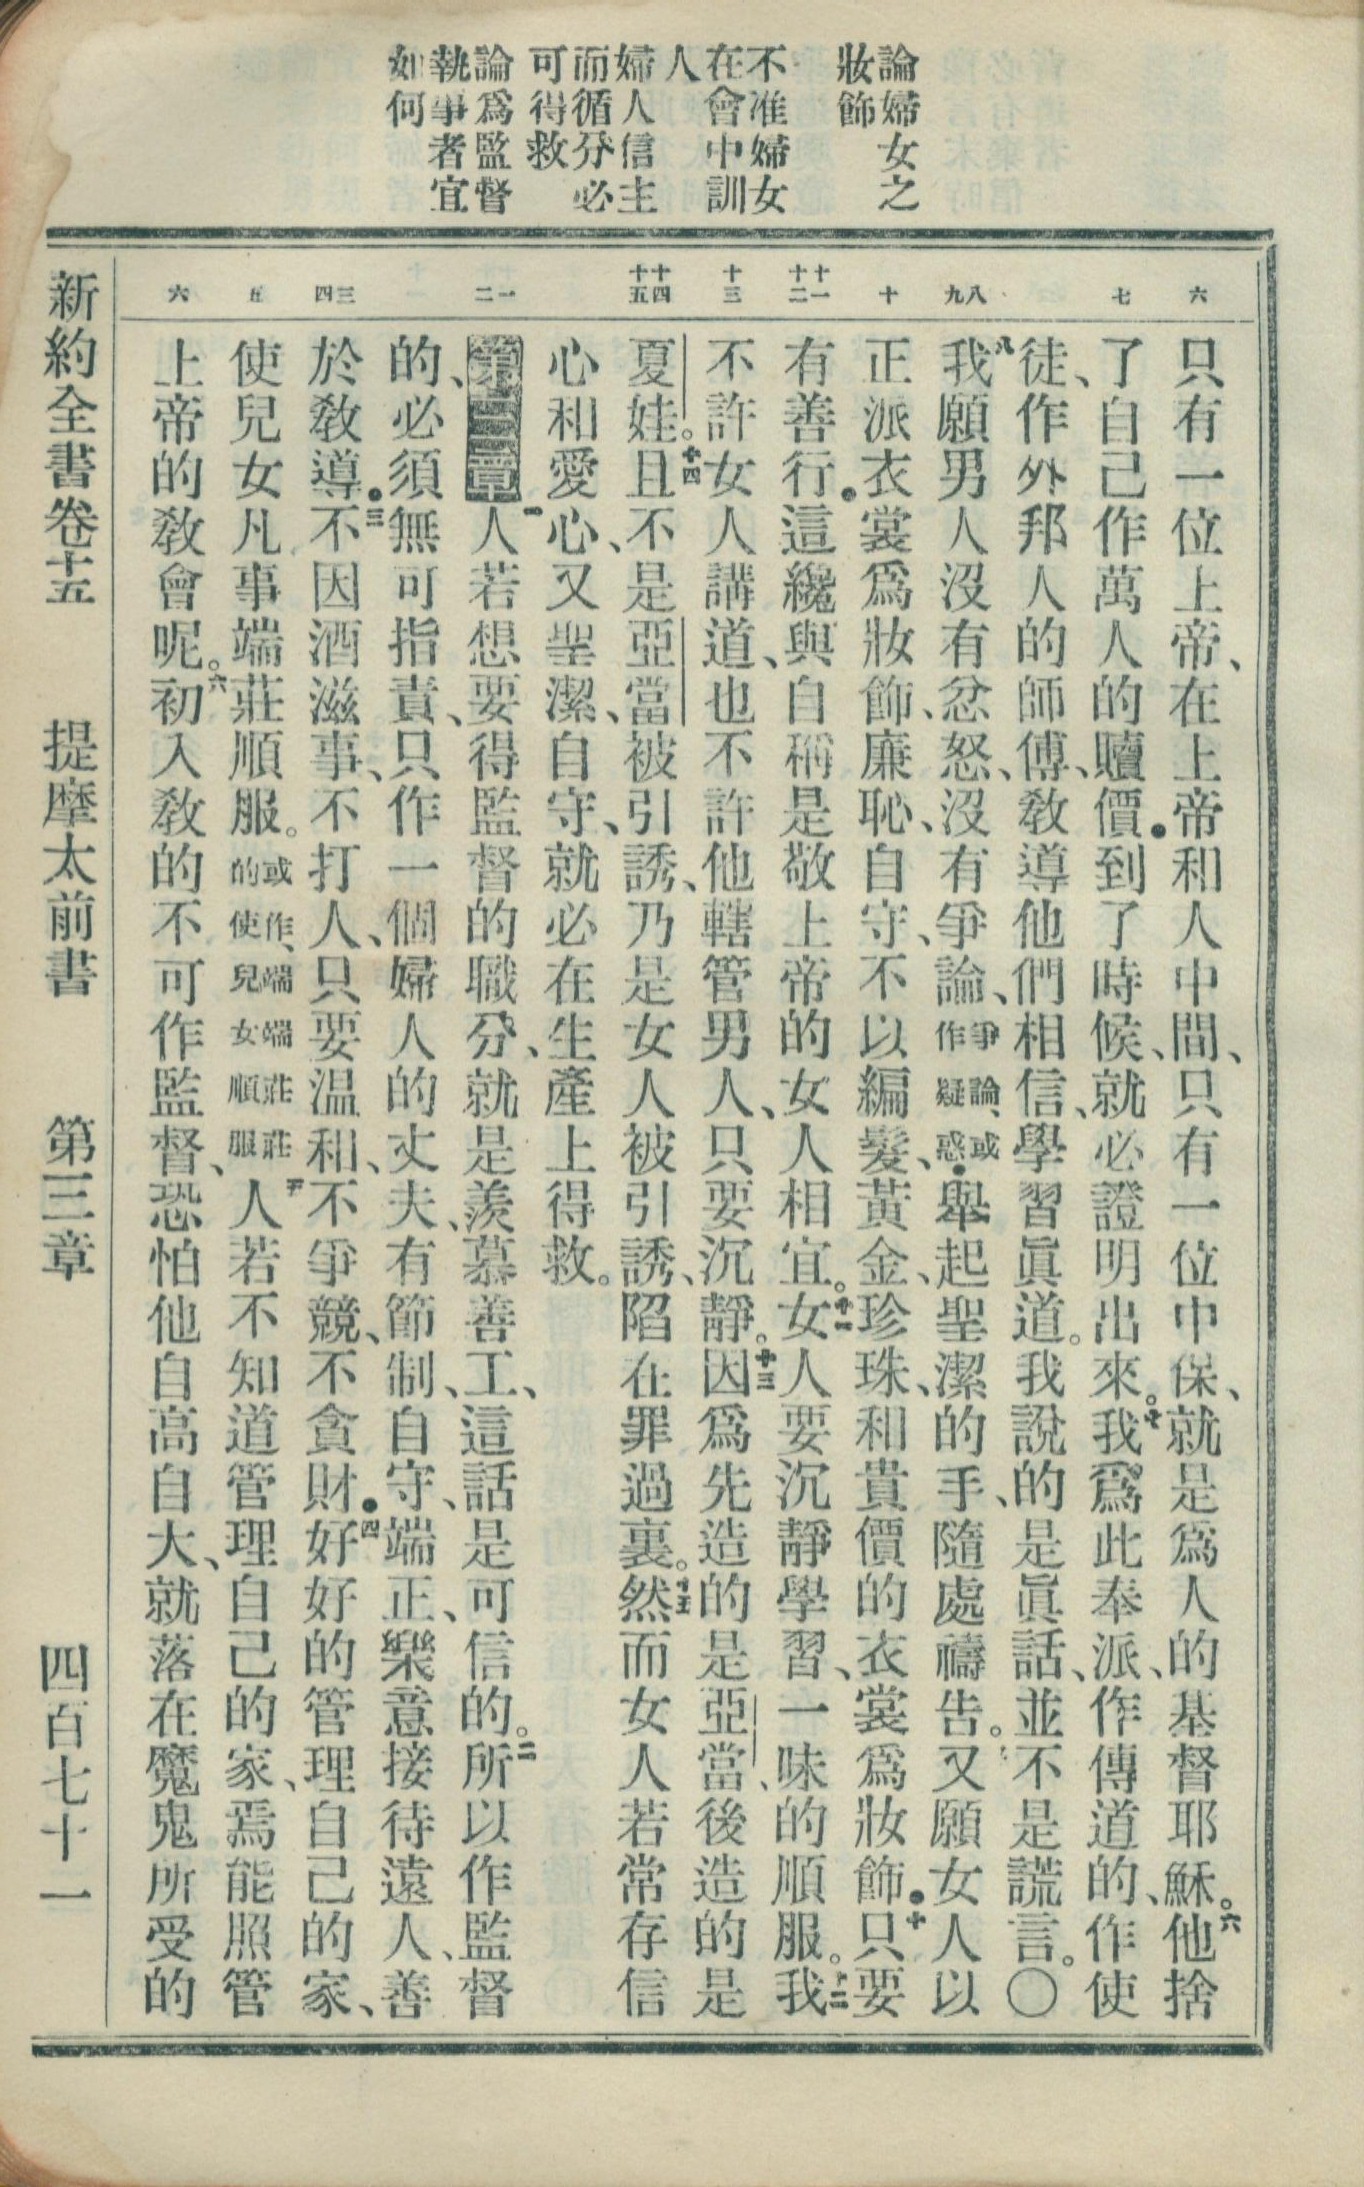 論婦女之
妝飾
不准婦女
在會中訓
人
婦人信主
而循分必
可得救
論爲監督
執事者宜
如何
六
七
八
九
十
十一
十二
十三
十四
十五
一
二
三
四
五
六
只有一位上帝、在上帝和人中間、只有一位中保、就是爲人的基督耶穌。六他捨
了自己作萬人的贖價●到了時候、就必證明出來。七我爲此奉派、作傳道的、作使
徒、作外邦人的師傅、敎導他們相信、學習眞道。我說的是眞話、並不是謊言。〇
八我願男人沒有忿怒、沒有爭論、爭論、或作疑惑●舉起聖潔的手、隨處禱告。九又願女人以
正派衣裳爲妝飾、廉恥、自守、不以編髮、黃金、珍珠、和貴價的衣裳爲妝飾●十只要
有善行●這纔與自稱是敬上帝的女人相宜。十一女人要沉靜學習、一味的順服。十二我
不許女人講道、也不許他轄管男人、只要沉靜。十三因爲先造的是亞當、後造的是
夏娃。十四且不是亞當被引誘、乃是女人被引誘、陷在罪過裏。十五然而女人若常存信
心和愛心、又聖潔、自守、就必在生產上得救。
第三章一人若想要得監督的職分、就是羨慕善工、這話是可信的。二所以作監督
的、必須無可指責、只作一個婦人的丈夫、有節制、自守、端正、樂意接待遠人、善
於敎導●三不因酒滋事、不打人、只要温和、不爭競、不貪財●四好好的管理自己的家、
使兒女凡事端莊順服。或作、端端莊莊的使兒女順服五人若不知道管理自己的家、焉能照管
上帝的敎會呢。六初入敎的不可作監督、恐怕他自高自大、就落在魔鬼所受的
新約全書卷十五 提摩太前書 第三章 四百七十一